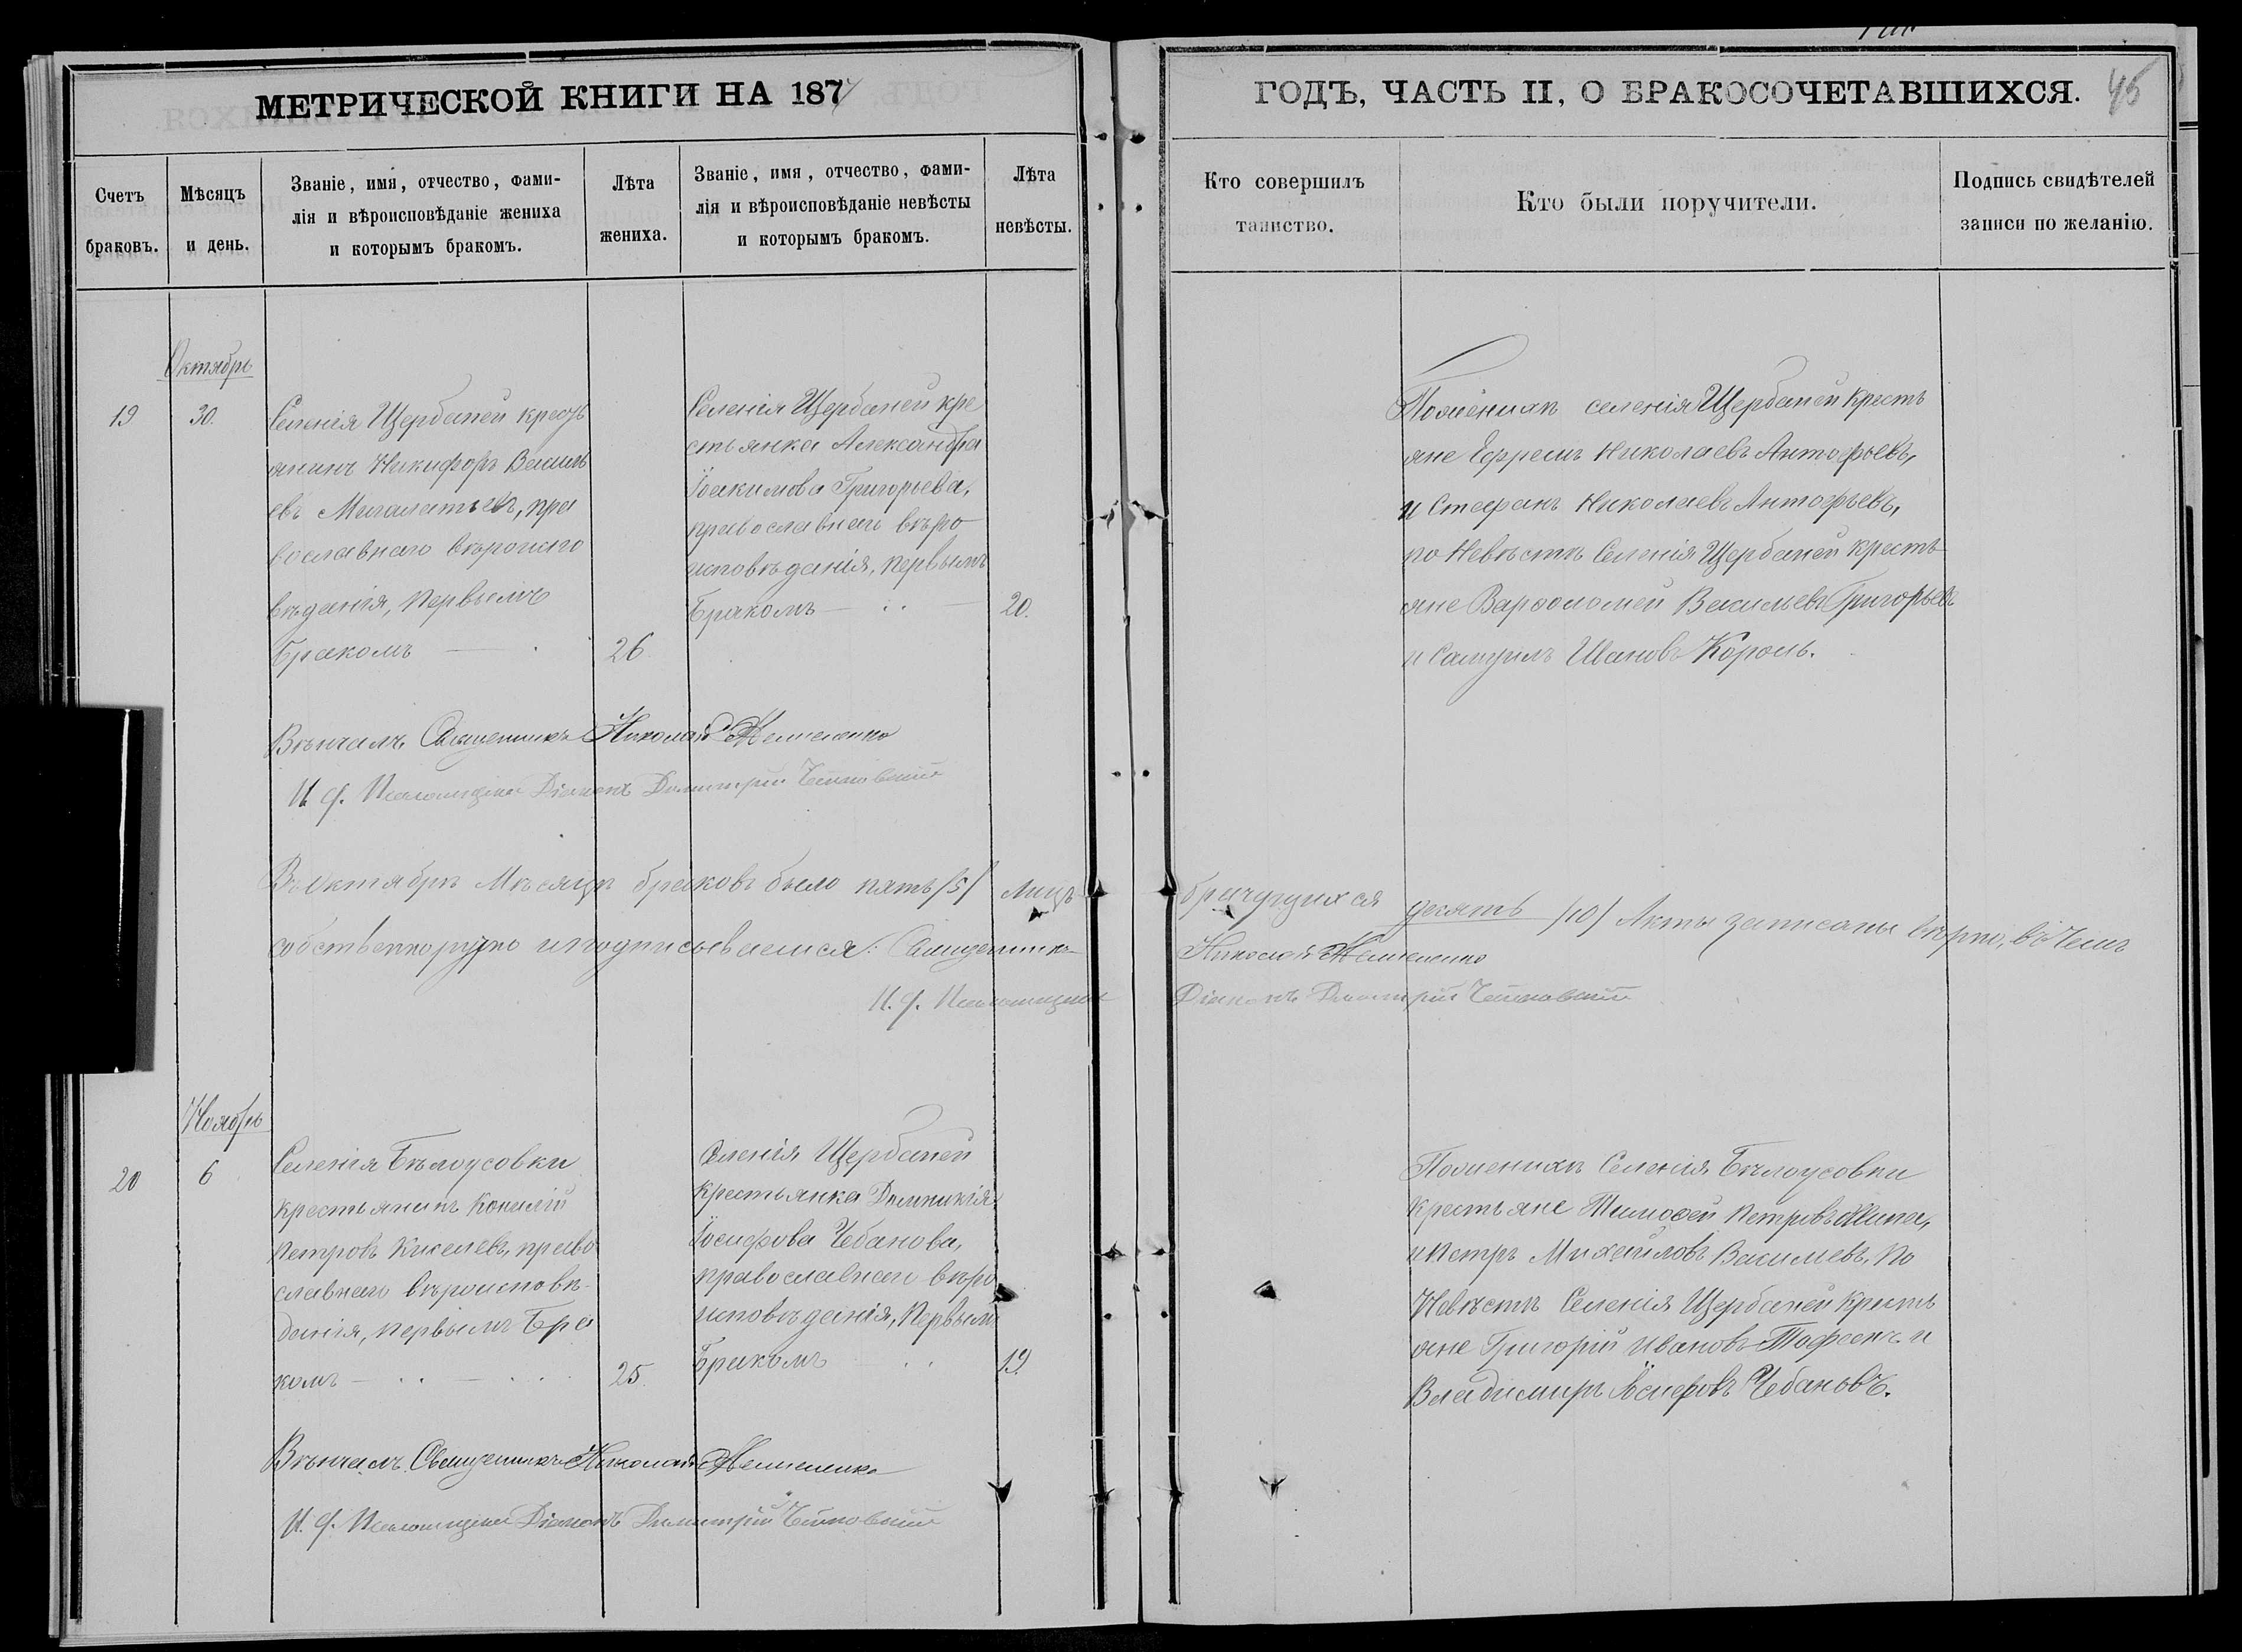 МЕТРИЧЕСКОЙ КНИГИ НА 1877
ГОДЪ, ЧАСТЬ II, О БРАКОСОЧЕТАВШИХСЯ. 45
Счетъ
браковъ.
Мѣсяцъ
и день.
Званіе, имя, отчество, фами-
лія и вѣроисповѣданіе жениха
и которымъ бракомъ.
Лѣта
жениха.
Званіе, имя, отчество, фами-
лія и вѣроисповѣданіе невѣсты
и которымъ бракомъ.
Лѣта
невѣсты.
Кто совершилъ
таинство.
Кто были поручители.
Подпись свидѣтелей
записи по желанію.
Октябрь
19
30.
Селенія Щербаней кресть
янинъ Никифоръ Василь
евъ, пра
вославнаго вѣроиспо
вѣданія, первымъ
бракомъ
26
Селенія Щербаней кре
стьянка Александра
Іоакимова Григорьева,
православнаго вѣро
исповѣданія, первымъ
бракомъ
20.
По женихѣ селенія Щербаней кресть
яне Ефремъ Николаевъ Антофьевъ,
и Стефанъ Николаевъ Антофьевъ,
по Невѣстѣ Селенія Щербаней кресть
яне Варфоломей Васильевъ Григорьевъ
и Самуилъ Ивановъ Король.
Вѣнчалъ Священникъ Николай
И. д. Псаломщика Діаконъ Димитрій
Въ Октябрѣ Мѣсяцѣ браковъ было пять /5/ Лицъ
брачущихся десять /10/ Акты записаны вѣрно, въ чемъ
собственноручно и подписываемся: Священникъ
Николай
И. д. Псаломщика
Діаконъ Димитрій
Ноябрь
20
6
Селенія Бѣлоусовки
крестьянинъ
Петровъ Киселевъ, право
славнаго вѣроисповѣ-
данія, первымъ Бра
комъ
25.
Селенія Щербаней
крестьянка Домникія
Іосифова Чебанова,
православнаго вѣро
исповѣданія, Первымъ
бракомъ
19.
По женихѣ Селенія Бѣлоусовки
Крестьяне Тимофей Петровъ
и Петръ Михайловъ Васильевъ, По
Невѣстѣ Селенія Щербаней кресть
яне Григорій Ивановъ и
Владимиръ Іосифовъ Чебановъ.
Вѣнчалъ Священникъ Николай
И. д. Псаломщика Діаконъ Димитрій